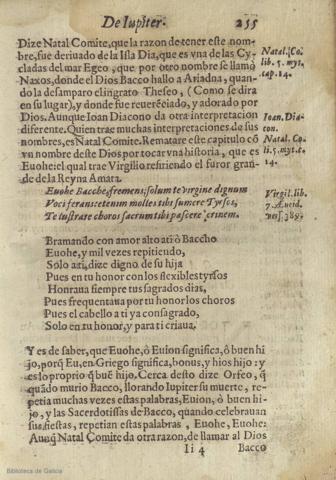 De Iupiter.
255
Dize Natal Comite, que la razon de tener este nom-
bre, fue deriuado de la Isla Dia, que es vna de las Cy-
cladas del mar Egeo, que por otro nombre se llamo
Naxos, donde el Dios Bacco hallo a Ariadna, quan-
do la desamparo el ingrato Theseo, (Como se dira
en su lugar), y donde fue reuerẽciado, y adorado por
Dios. Aunque Ioan Diacono da otra interpretacion
diferente. Quien trae muchas interpretaciones de sus
nombres, es Natal Comite. Rematare este capitulo cõ
vn nombre deste Dios por tocar vna historia, que es
Euohe: el qual trae Virgilio refiriendo el furor gran-
de de la Reyna Amata.
Natal. Co.
lib. 5. myt.
cap. 14.
Ioan. Dia-
con.
Natal. Co.
li. 5. myt. c.
14.
Euohe Bacche, fremens; solum te virgine dignum
Voci ferans: etenim molles tibi sumere Tyrsos,
Te lustrare choros sacrum tibi pascere crinem.
Virgil. lib.
7. Æneid.
vers. 389.
Bramando con amor alto ati ò Baccho
Euohe, y mil vezes repitiendo,
Solo ati, dize digno de su hija
Pues en tu honor con los flexibles tyrsos
Honraua siempre tus sagrados dias,
Pues frequentaua por tu honor los choros
Pues el cabello a ti ya consagrado,
Solo en tu honor, y para ti criaua.
Y es de saber, que Euohe, ò Euion significa, ô buen hi
jo, porq̃ Eu, en Griego significa, bonus, y hios hijo: y
es lo proprio q̃ buẽ hijo. Cerca desto dize Orfeo, q̃
quãdo murio Bacco, llorando Iupiter su muerte, re-
petia muchas vezes estas palabras, Euion, ò buen hi-
jo, y las Sacerdotissas de Bacco, quando celebrauan
sus fiestas, repetian estas palabras, Euohe, Euohe:
Aunq̃ Natal Comite da otra razon, de llamar al Dios
Ii 4
Bacco
Biblioteca de Galicia